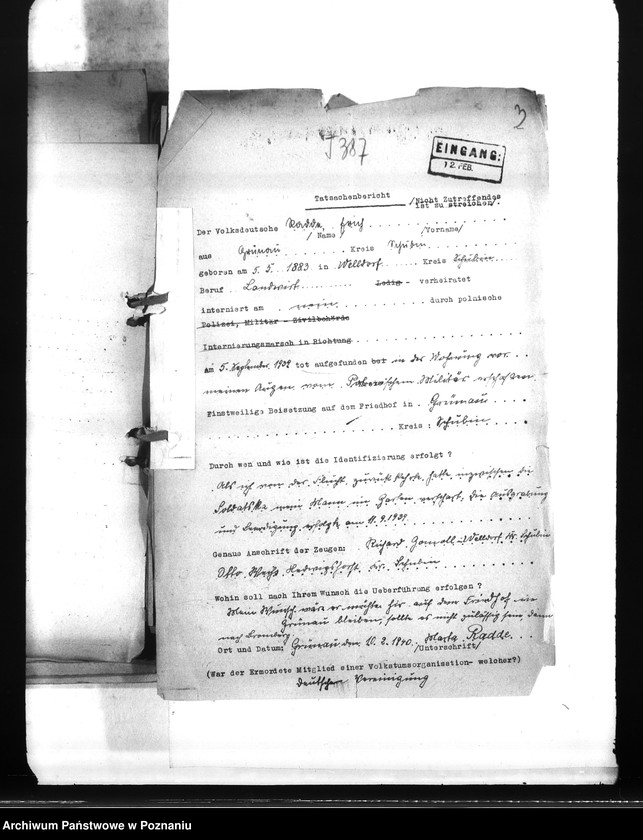 3
J 387
EINGANG:
12. FEB.
Tatsachenbericht /Nicht Zutreffendes
ist zu streichen/.
Der Volksdeutsche Radde, Erich
/ Name / /Vorname/
aus Grünau Kreis Schubin
geboren am 5. 5. 1883 in Welldorf Kreis Schubin
Beruf Landwirt Ledig - verheiratet
interniert am nein durch polnische
Polizei, Militär - Zivilbehörde
Internierungsmarsch in Richtung
am 5. September 1939 tot aufgefunden bei in der Wohnung vor
meinen Augen vom Militär erschossen.
Einstweilige Beisetzung auf dem Friedhof in Grünau
Kreis: Schubin
Durch wen und wie ist die Identifizierung erfolgt ?
Als ich von der Flucht zurück kehrte, hatte inzwischen die
Soldatska mein Mann im Garten verscharrt, die Ausgrabung
und Beerdigung erfolgte am 11.9.1939.
Genaue Anschrift der Zeugen: Richard - Welldorf Kr. Schubin
Otto Hedwigshorst, Kr. Schubin
Wohin soll nach Ihrem Wunsch die Ueberführung erfolgen ?
Mein Wunsch wäre er möchte hier auf dem Friedhof in
Grünau bleiben, sollte es nicht zulässig sein dann
nach Bromberg.
Ort und Datum: Grünau den 10. 2. 1940. Marta Radde.
/Unterschrift/
(War der Ermordete Mitglied einer Volkstumsorganisation- welcher?)
Deutsche Vereinigung
Archiwum Państwowe w Poznaniu